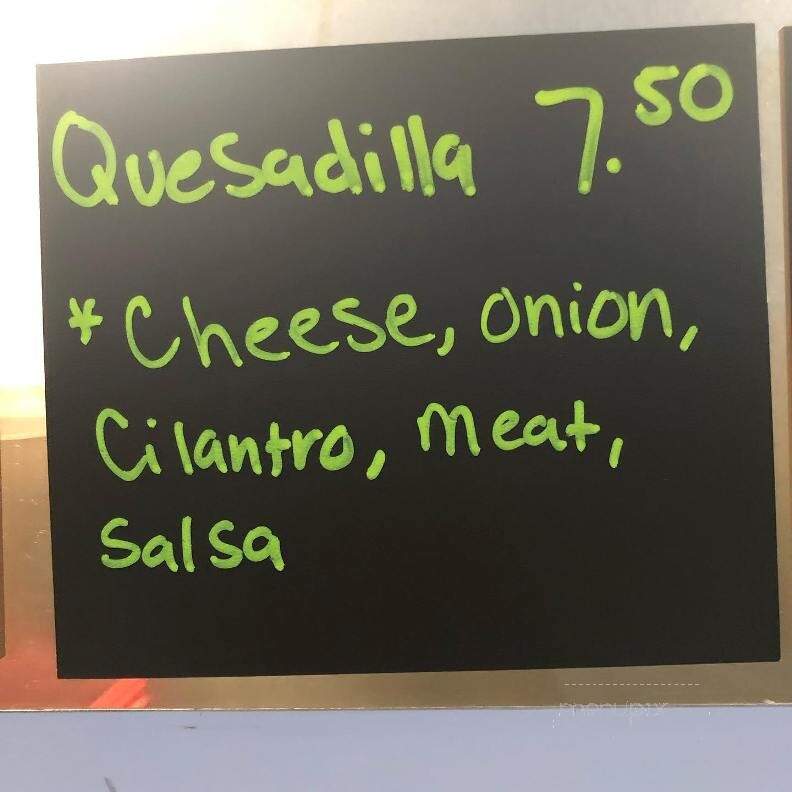 Quesadilla 7.50
*Cheese, onion,
Cilantro, meat,
Salsa
menupix